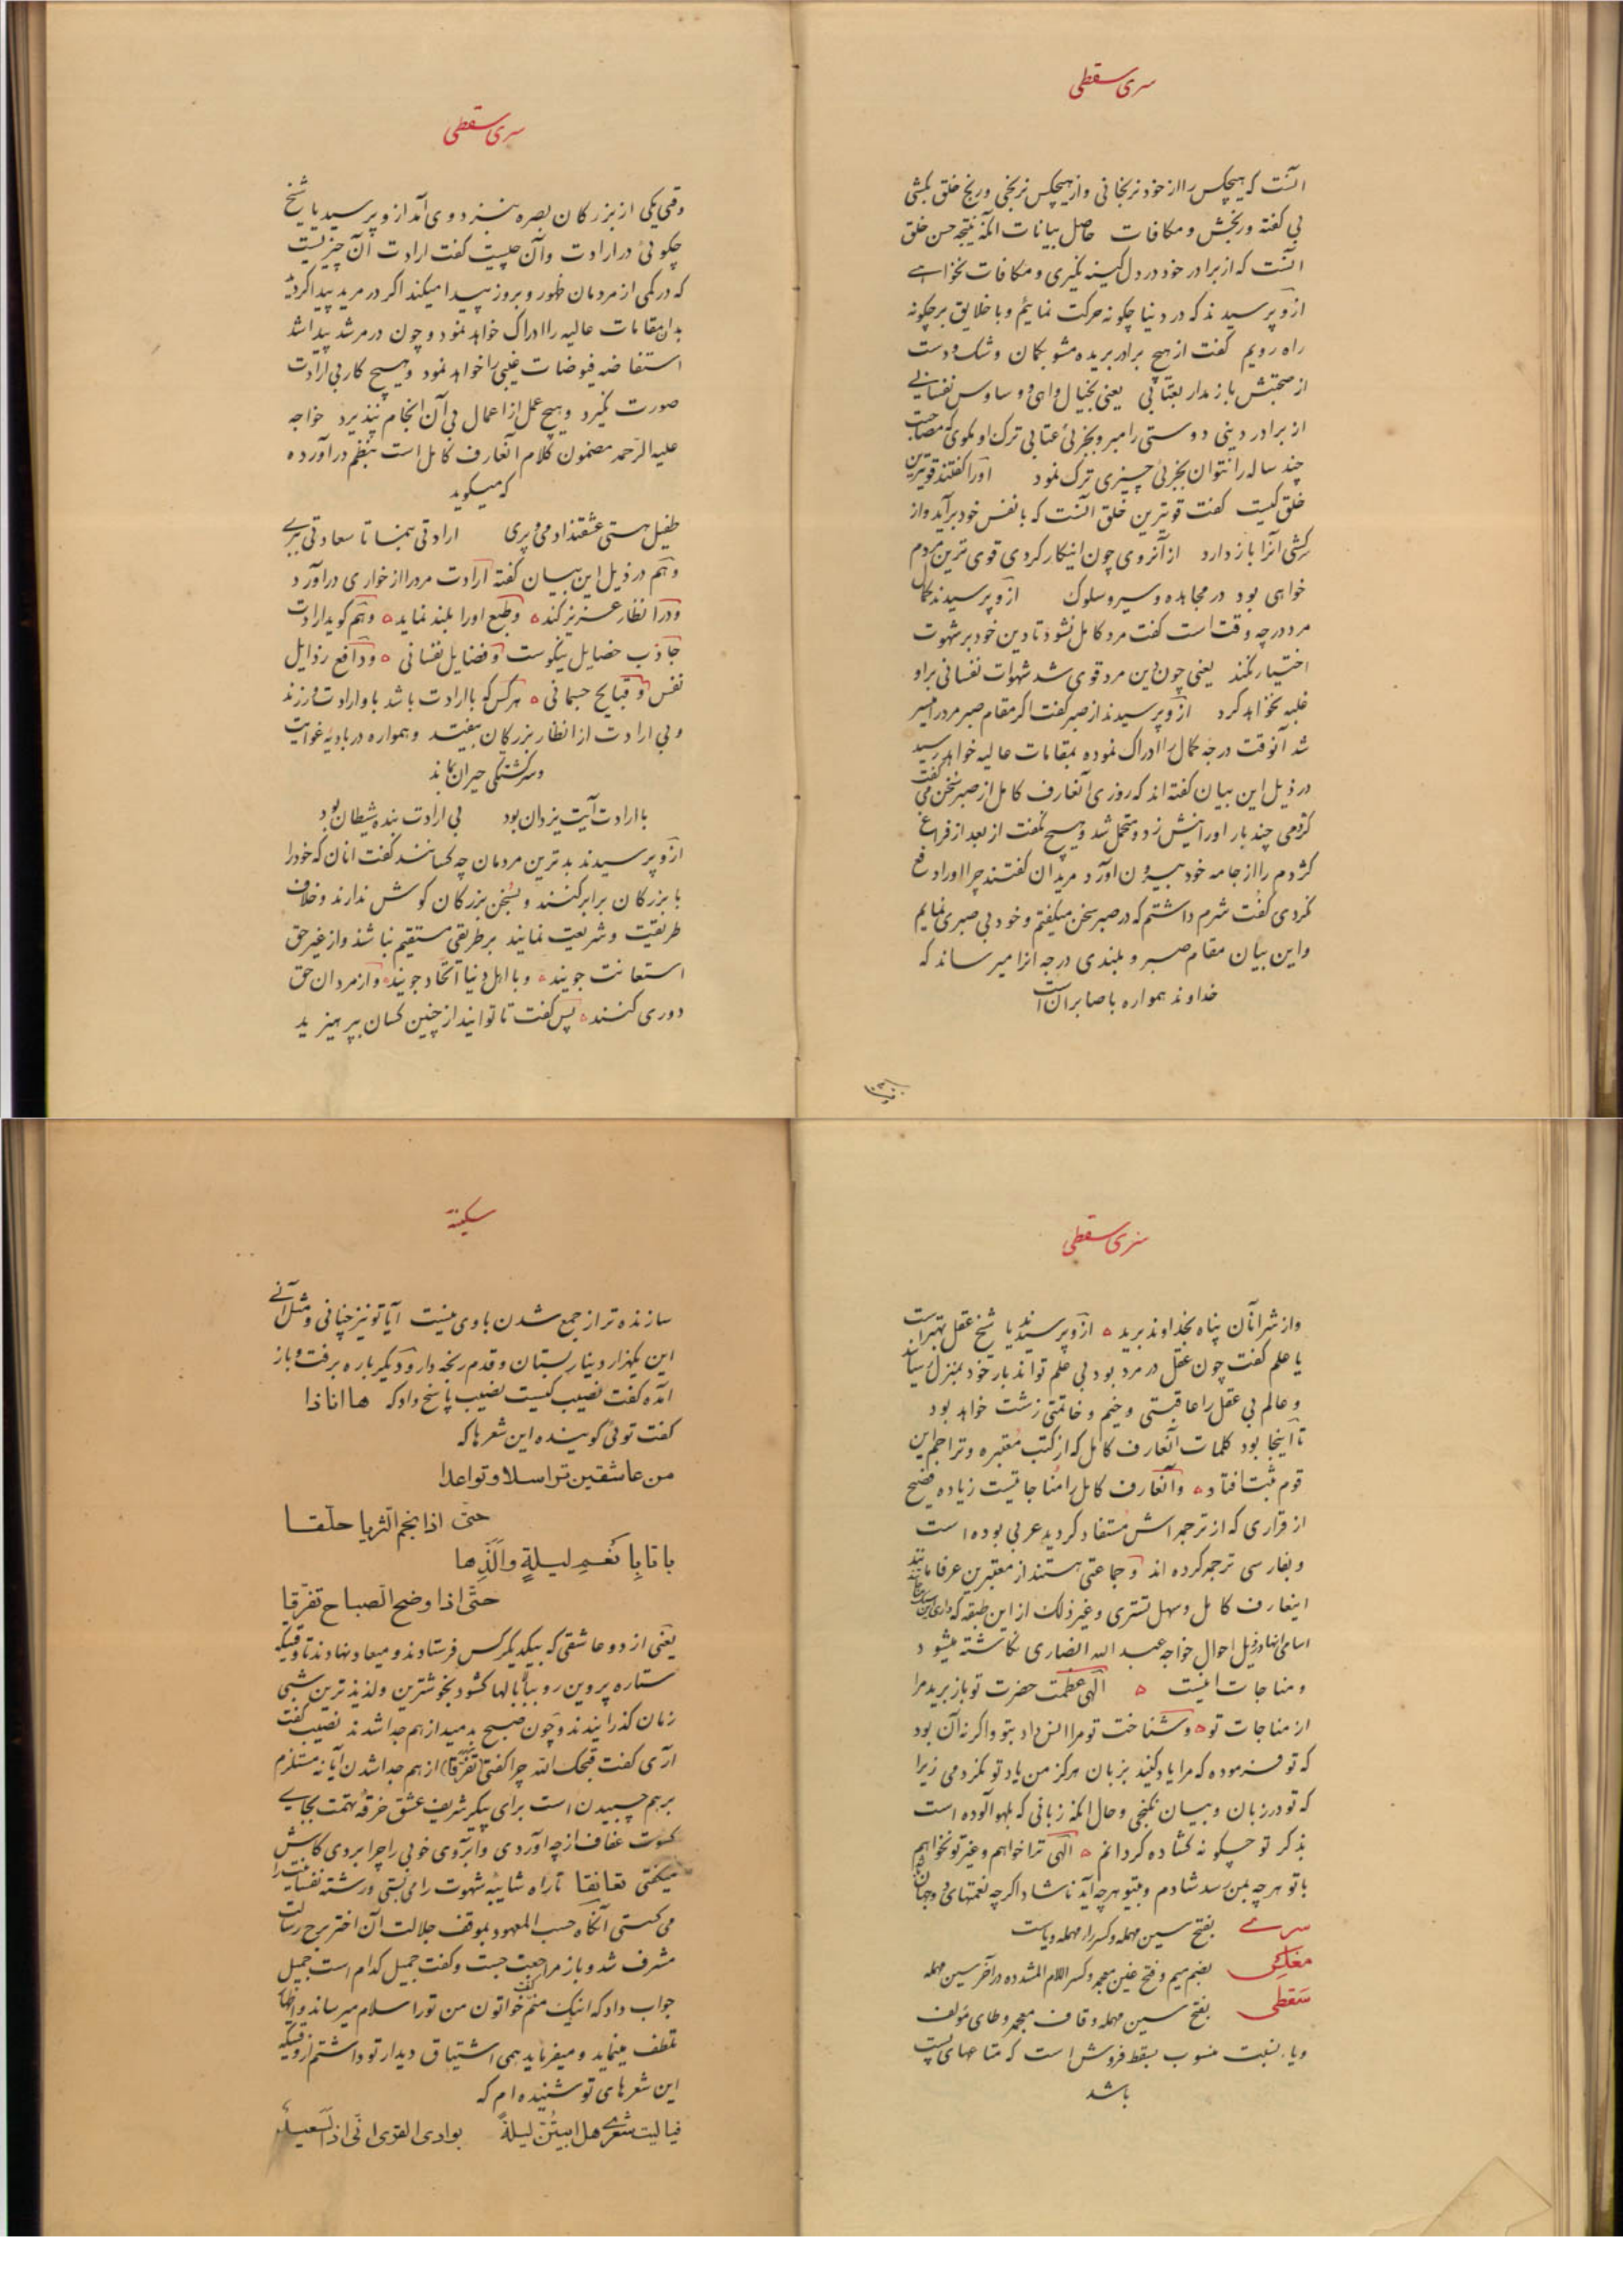 سری سقطی
آنست که هیچکس را از خود نرنجانی و از هیچکس نرنجی و رنج خلق بکشی
بی کفته ورنجش و مکافات حاصل بیانات آنکه نتیجه حسن خلق
آنست که از برادر خود در دل کینه نگیری و مکافات نخواهے
ازو پرسیدند که در دنیا چکونه حرکت نمایم و با خلایق بر چکونه
راه رویم کفت از هیچ برادر بریده مشو بکمان و شک و دست
از صحبتش باز مدار بعتابی یعنی بخیال واهی و وساوس نفسانے
از برادر دینی دوستی را مبر و بجزئی عتابی ترک او مکوی که مصاحبت
چند ساله را نتوان بجزئی چیزی ترک نمود او را کفتند قویترین
خلق کیست کفت قویترین خلق آنست که با نفس خود برآید و از
سرکشی آنرا باز دارد از آنروی چون اینکار کردی قوی ترین مردم
خواهی بود در مجاهده و سیر و سلوک ازو پرسیدند کمال
مرد در چه وقت است کفت مرد کامل نشود تا دین خود بر شهوت
اختیار نکند یعنی چون دین مرد قوی شد شهوات نفسانی بر او
غلبه نخواهد کرد ازو پرسیدند از صبر کفت اکر مقام صبر مرد را میسر
شد آنوقت درجه کمال را ادراک نموده بمقامات عالیه خواهد رسید
در ذیل این بیان کفته اند که روزی آنعارف کامل از صبر سخن می کفت
کژدمی چند بار او را نیش زد و متحمل شد و هیچ نکفت از بعد از فراغ
کژدم را از جامه خود بیرون آورد مریدان کفتند چرا او را دفع
نکردی کفت شرم داشتم که در صبر سخن میکفتم و خود بی صبری نمایم
و این بیان مقام صبر و بلندی درجه آنرا میرساند که
خداوند همواره با صابران است
سری سقطی
وقتی یکی از بزرکان بصره بنزد وی آمد ازو پرسید یا شیخ
چکوئی در ارادت و آن چیست کفت ارادت آن چیزیست
که در کمی از مردمان ظهور و بروز پیدا میکند اکر در مرید پیدا کردید
بدان مقامات عالیه را ادراک خواهد نمود و چون در مرشد پیدا شد
استفاضه فیوضات غیبی را خواهد نمود و هیچ کار بی ارادت
صورت نکیرد و هیچ عمل از اعمال بی آن انجام نپذیرد خواجه
علیه الرحمه مضمون کلام آنعارف کامل است بنظم درآورده
که میکوید
طفیل هستی عشقند آدمی و پری ارادتی بنما تا سعادتی ببرے
و هم در ذیل این بیان کفته ارادت مرد را از خواری درآورد
و در انظار عزیز کند و طبع او را بلند نماید و هم کوید ارادت
جاذب خصایل نیکوست و فضایل نفسانی و دافع رذایل
نفس و قبایح جسمانی هر کس که با ارادت باشد با او ارادت ورزند
و بی ارادت از انظار بزرکان بیفتد و همواره در بادیه غوایت
و سرکشتکی حیران بماند
با ارادت آیت یزدان بود بی ارادت بنده شیطان بود
ازو پرسیدند بدترین مردمان چه کسانند کفت آنان که خود را
با بزرکان برابر کنند و بسخن بزرکان کوش ندارند و خلاف
طریقت و شریعت نمایند بر طریقی مستقیم نباشند و از غیر حق
استعانت جویند و با اهل دنیا اتحاد جویند و از مردان حق
دوری کنند پس کفت تا توانید از چنین کسان بپرهیزید
سری سقطی
و از شر آنان پناه بخداوند برید ازو پرسیدند یا شیخ عقل بهتر است
یا علم کفت چون عقل در مرد بود بی علم تواند بار خود بمنزل رساند
و عالم بی عقل را عاقبتی وخیم و خاتمتی زشت خواهد بود
تا اینجا بود کلمات آنعارف کامل که از کتب معتبره و تراجم این
قوم ثبت افتاد و آنعارف کامل را مناجاتیست زیاده فصیح
از قراری که از ترجمه اش مستفاد کردید عربی بوده است
و بفارسی ترجمه کرده اند و جماعتی هستند از معتبرین عرفا مانند
اینعارف کامل و سهل تستری و غیر ذلک از این طبقه که
اسامی انها در ذیل احوال خواجه عبد الله انصاری نکاشته میشود
و مناجات اینست الهی عظمت حضرت تو باز برید مرا
از مناجات تو و شناخت تو مرا انس داد بتو و اکر نه آن بود
که تو فرموده که مرا یاد کنید بزبان هرکز من یاد تو نکردمی زیرا
که تو در زبان و بیان نکنجی و حال آنکه زبانی که بلهو آلوده است
بذکر تو چکونه کشاده کردانم الهی ترا خواهم و غیر تو نخواهم
با تو هر چه بمن رسد شادم و بیتو هر چه آید ناشاد اکر چه نعمتهای دو جهان
سرے بفتح سین مهمله و کسر راء مهمله و یاست
مغلس بضم میم و فتح غین معجمه و کسر اللام المشدده در آخر سین مهمله
سقطی بفتح سین مهمله و قاف معجمه و طای مؤلف
و یاء نسبت منسوب بسقط فروش است که متاعهای پست
باشد
سکینه
سازنده تر از جمع شدن با وی نیست آیا تو نیز چنانی و مثل آنے
این یکهزار دینار بستان و قدم رنجه دار و دیکرباره برفت و باز
آمده کفت نصیب کیست نصیب پاسخ داد که ها انا ذا
کفت توئی کوینده این شعرها که
من عاشقین تراسلا و تواعدا
حتی اذا نجم الثریا حلقا
باتا بانعم لیلة والذها
حتی اذا وضح الصباح تفرقا
یعنی از دو عاشقی که بیکدیکر کس فرستادند و میعاد نهادند تا وقتیکه
ستاره پروین رو ببالا بالها کشود بخوشترین و لذیذترین شبی
زمان کذرانیدند و چون صبح بدمید از هم جدا شدند نصیب کفت
آری کفت قبحک الله چرا کفتی (تفرقا) از هم جدا شدن آیا نه مستلزم
برهم چسبیدن است برای پیکر شریف عشق خرقه تهمت بجاے
کسوت عفاف از چه آوردی و ابروی خوبی را چرا بروی کابش
میکفتی تعانقا تا راه شائبه شهوت را می بستی و رشته نفسانیت را
می کسستی آنکاه حسب المعهود بموقف جلالت آن اختر برج رسالت
مشرف شد و باز مراجعت جست و کفت جمیل کدام است جمیل
جواب داد که اینک منم کفت خواتون من تو را سلام میرساند و اظهار
تلطف مینماید و میفرماید همی اشتیاق دیدار تو داشتم از وقتیکه
این شعرهای تو شنیده ام که
فیا لیت شعری هل ابیتن لیلة بوادی القری انی اذا لسعید